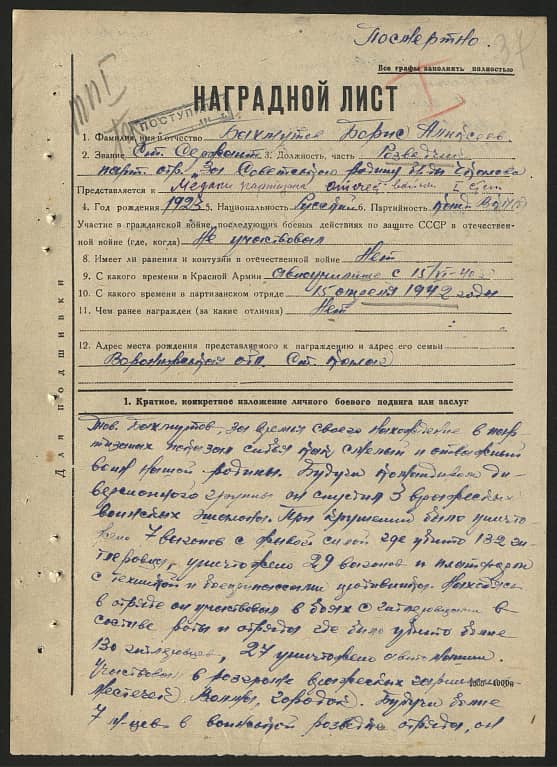 Посмертно.
37
Все графы заполнить полностью
I
НАГРАДНОЙ ЛИСТ
ПОСТУПИ
1. Фамилия, имя и отчество Бахмутов Борис
2. Звание Ст. Сержант 3. Должность, часть Разведчик
парт. отр. "За Советскую родину"
Представляется к Медали партизана отеч. войны I степ
4. Год рождения 1923 5. Национальность Русский 6. Партийность
Участие в гражданской войне, последующих боевых действиях по защите СССР в отечествен-
ной войне (где, когда) Не участвовал
8. Имеет ли ранения и контузии в отечественной войне Нет
9. С какого времени в Красной Армии с 15/VI-40
10. С какого времени в партизанском отряде 15 апреля 1942 года
11. Чем ранее награжден (за какие отличия) Нет
12. Адрес места рождения представляемого к награждению и адрес его семьи
Воронежская обл. Ст.
Для подшивки
1. Краткое, конкретное изложение личного боевого подвига или заслуг
Тов. Бахмутов, за время своего нахождения в пар-
тизанах показал себя как смелый и отважный
воин нашей родины. Будучи командиром ди-
версионного группы он спустил 3 вражеских
воинских эшелона. При крушении было уничто
жено 7 вагонов с живой силой где убито 132 ги-
тлеровца, уничтожено 29 вагонов и платформ
с техникой и боеприпасами противника. Находясь
в отряде он участвовал в боях с гитлеровцами в
составе роты и отряда где было убито более
130 гитлеровцев, 27 уничтожено автомашин.
Участвовал в разгроме вражеских гарни
местечек городок. Будучи более
7 м-цев в воинской разведке отряда, он